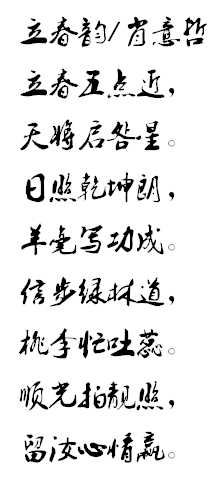 立春韵/肖意哲
立春五点近，
天将启明星。
日照乾坤朗，
羊毫写功成。
信步绿林道，
桃李忙吐蕊。
顺光拍靓照，
留汝心情赢。